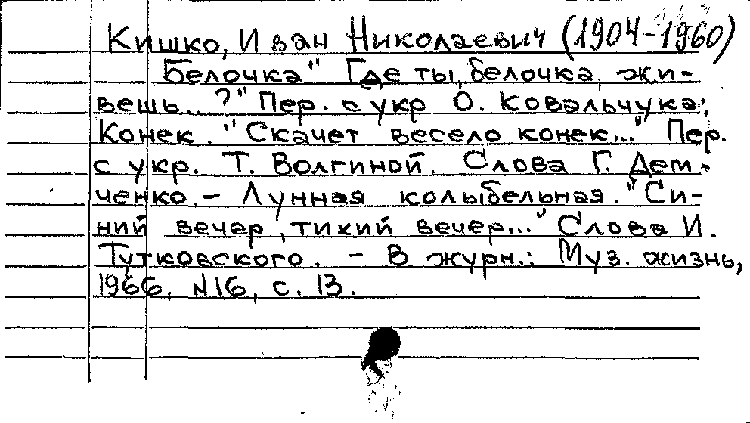 Кишко, Иван Николаевич (1904-1960)
Белочка" Где ты, белочка, жи-
вешь...?" Пер. с укр О. Ковальчука;
Конек. "Скачет весело конек..." Пер.
с укр. Т. Волгиной. Слова Г. Дем-
ченко. - Лунная колыбельная. "Си-
ний вечер, тихий вечер..." Слова И.
Тутковского. - В журн.: Муз. жизнь,
1966, N16, с. 13.